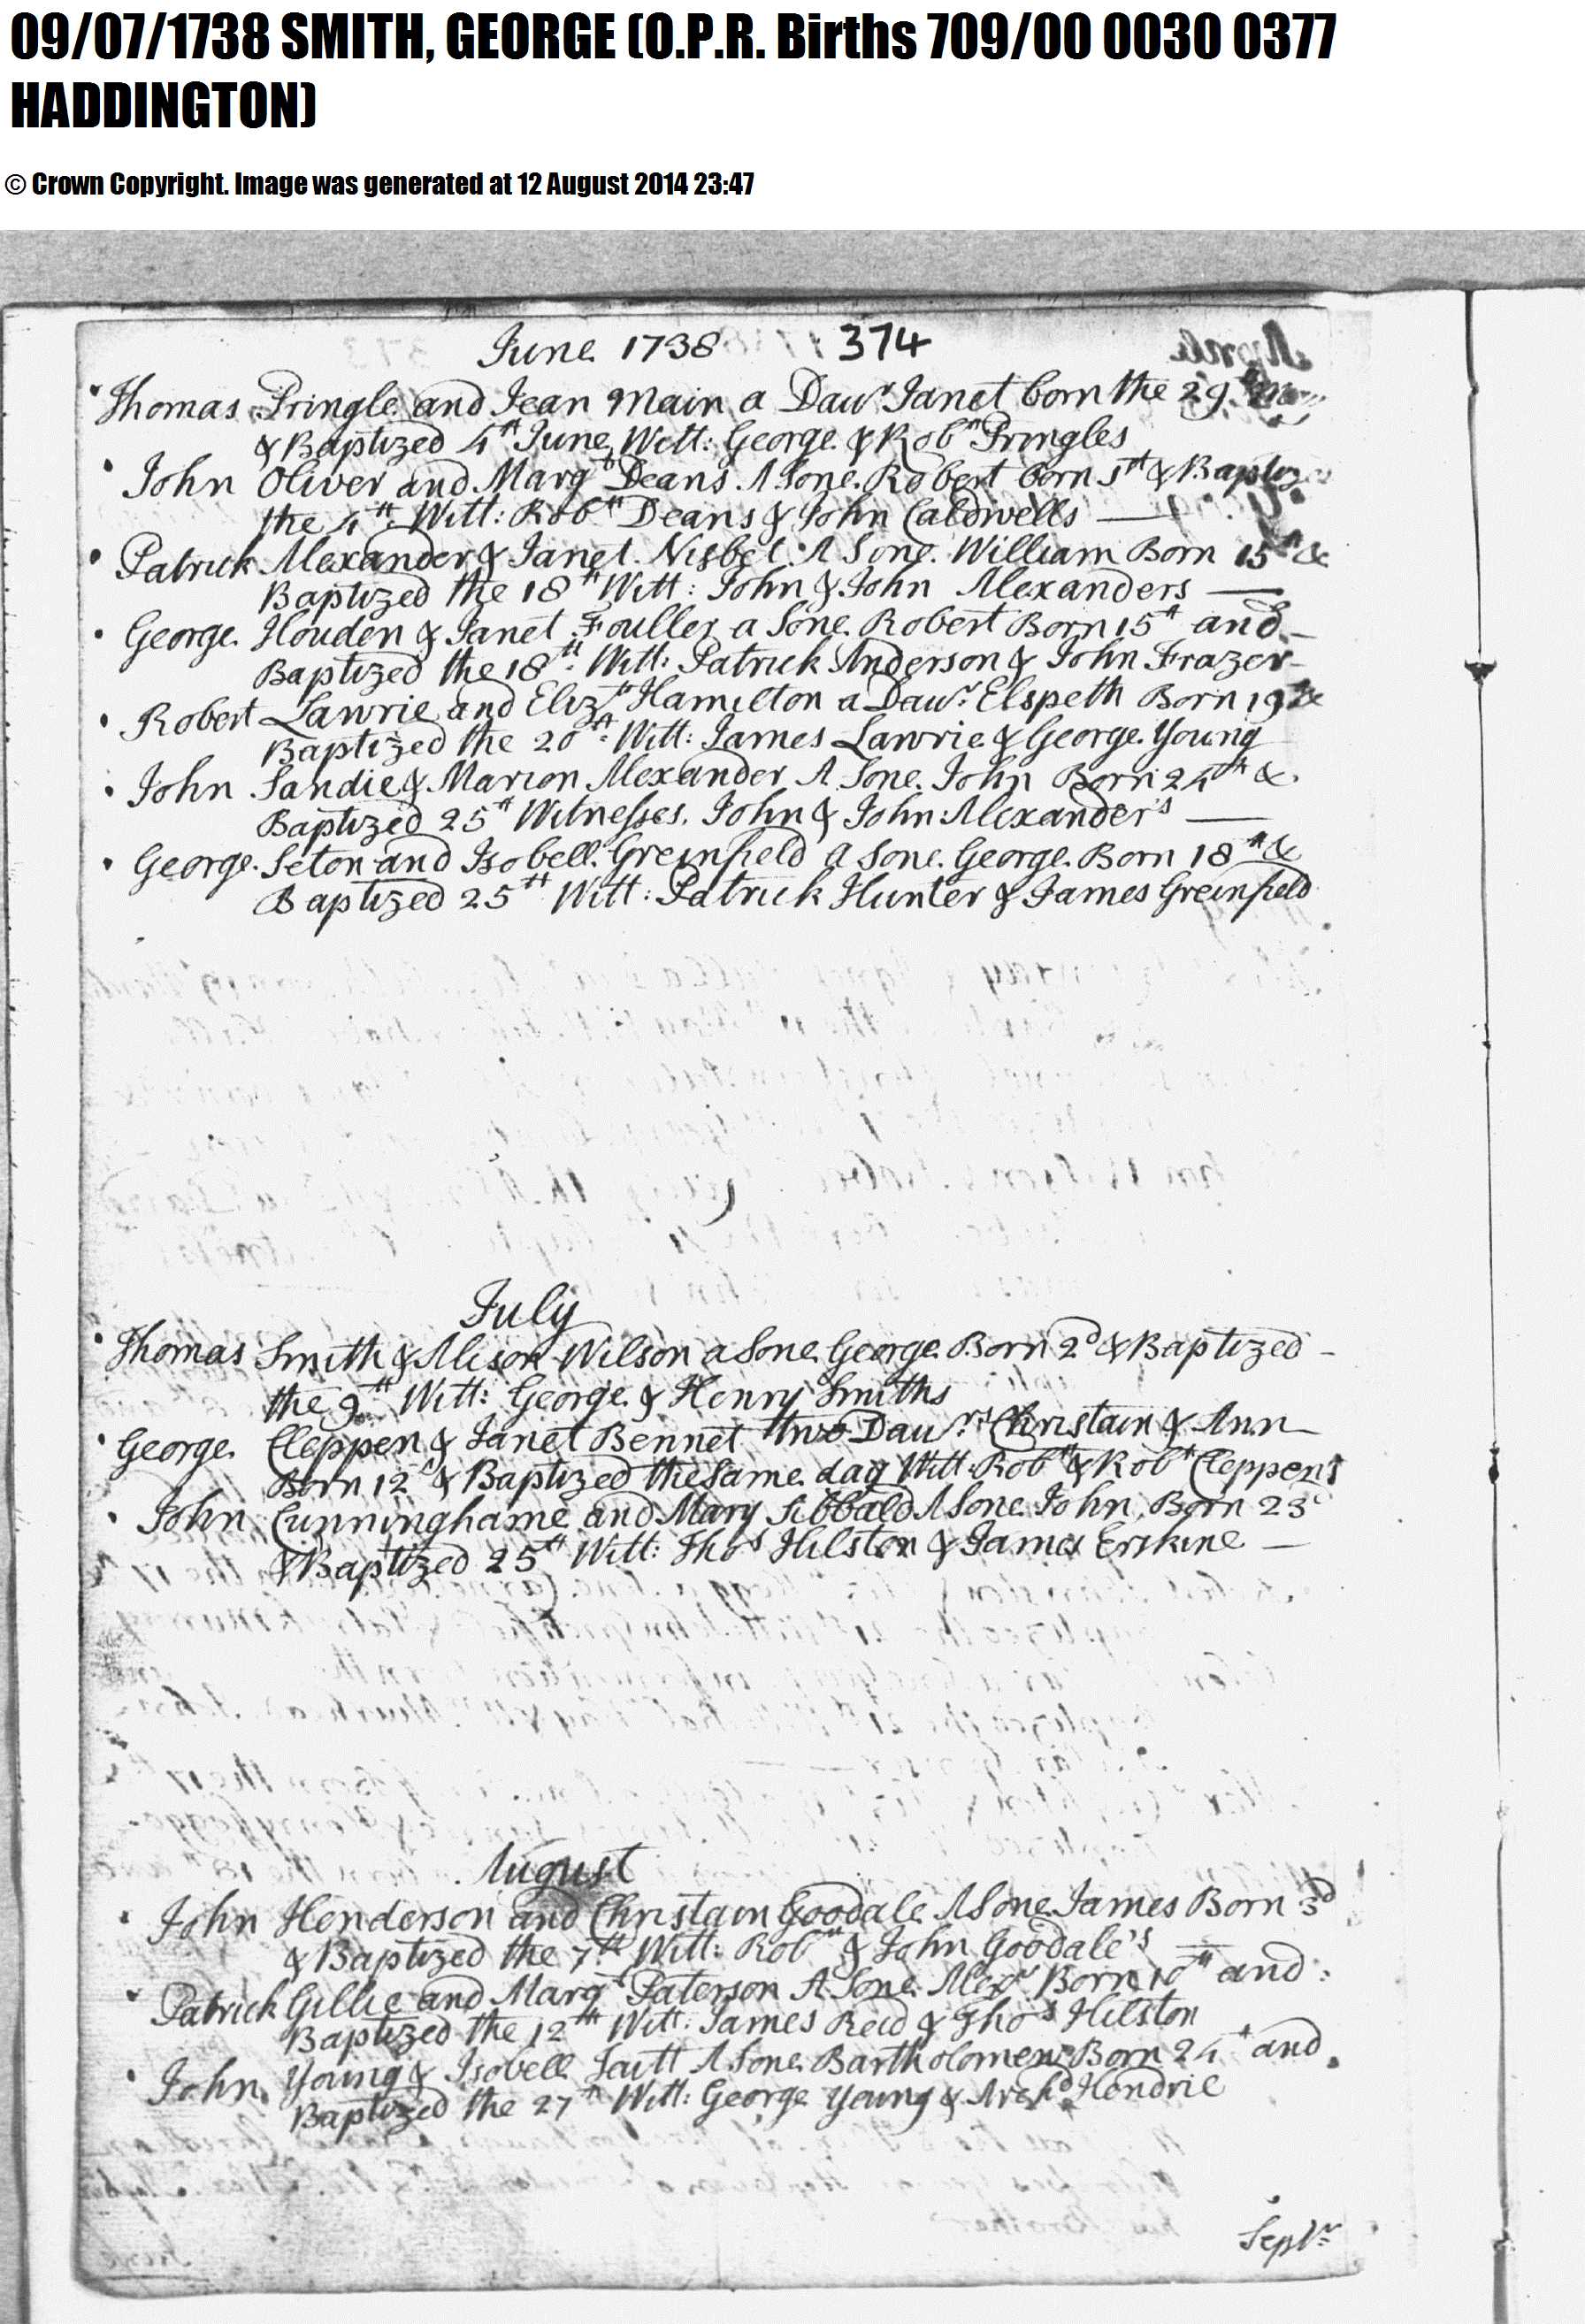 09/07/1738 SMITH, GEORGE (O.P.R. Births 709/00 0030 0377
HADDINGTON)
© Crown Copyright. Image was generated at 12 August 2014 23:47
June 1738 374
Thomas Pringle and Jean Main a Dawr Janet born the 29th
& Baptized 4th June Witt: George & Robt Pringles
John Oliver and Margt Deans A Sone Robert born 1st & Baptiz
the 4th Witt: Robt Deans & John Caldwells —
Patrick Alexander & Janet Nisbet A Sone William Born 15th &
Baptized the 18th Witt: John & John Alexanders —
George Houden & Janet Fouller a Sone Robert Born 15th and
Baptized the 18th Witt: Patrick Anderson & John Frazer
Robert Lawrie and Elizth Hamilton a Dawr Elspeth Born 19th &
Baptized the 20th Witt: James Lawrie & George Young
John Sandie & Marion Alexander A Sone John Born 24th &
Baptized 25th Witnesses John & John Alexander's —
George Seton and Isobell Greinfield a Sone George Born 18th &
Baptized 25th Witt: Patrick Hunter & James Greinfield
July
Thomas Smith & Alison Wilson a Sone George Born 2d & Baptized
the 9th Witt: George & Henry Smiths
George Cleppen & Janet Bennet two Dawrs Christain & Ann
Born 12th & Baptized the same day Witt: Robt & Robt Cleppens
John Cunninghame and Mary Sibbald A Sone John Born 23d
& Baptized 25th Witt: Thos Hilston & James Erskine —
August
John Henderson and Christain Goodale A Sone James Born 3d
& Baptized the 7th Witt: Robt & John Goodale's
Patrick Gillie and Margt Paterson A Sone Alexr Born 10th and
Baptized the 12th Witt: James Reid & Thos Hilston
John Young & Isobell Scutt A Sone Bartholomew Born 24th and
Baptized the 27th Witt: George Young & Archd Hendrie
Septr